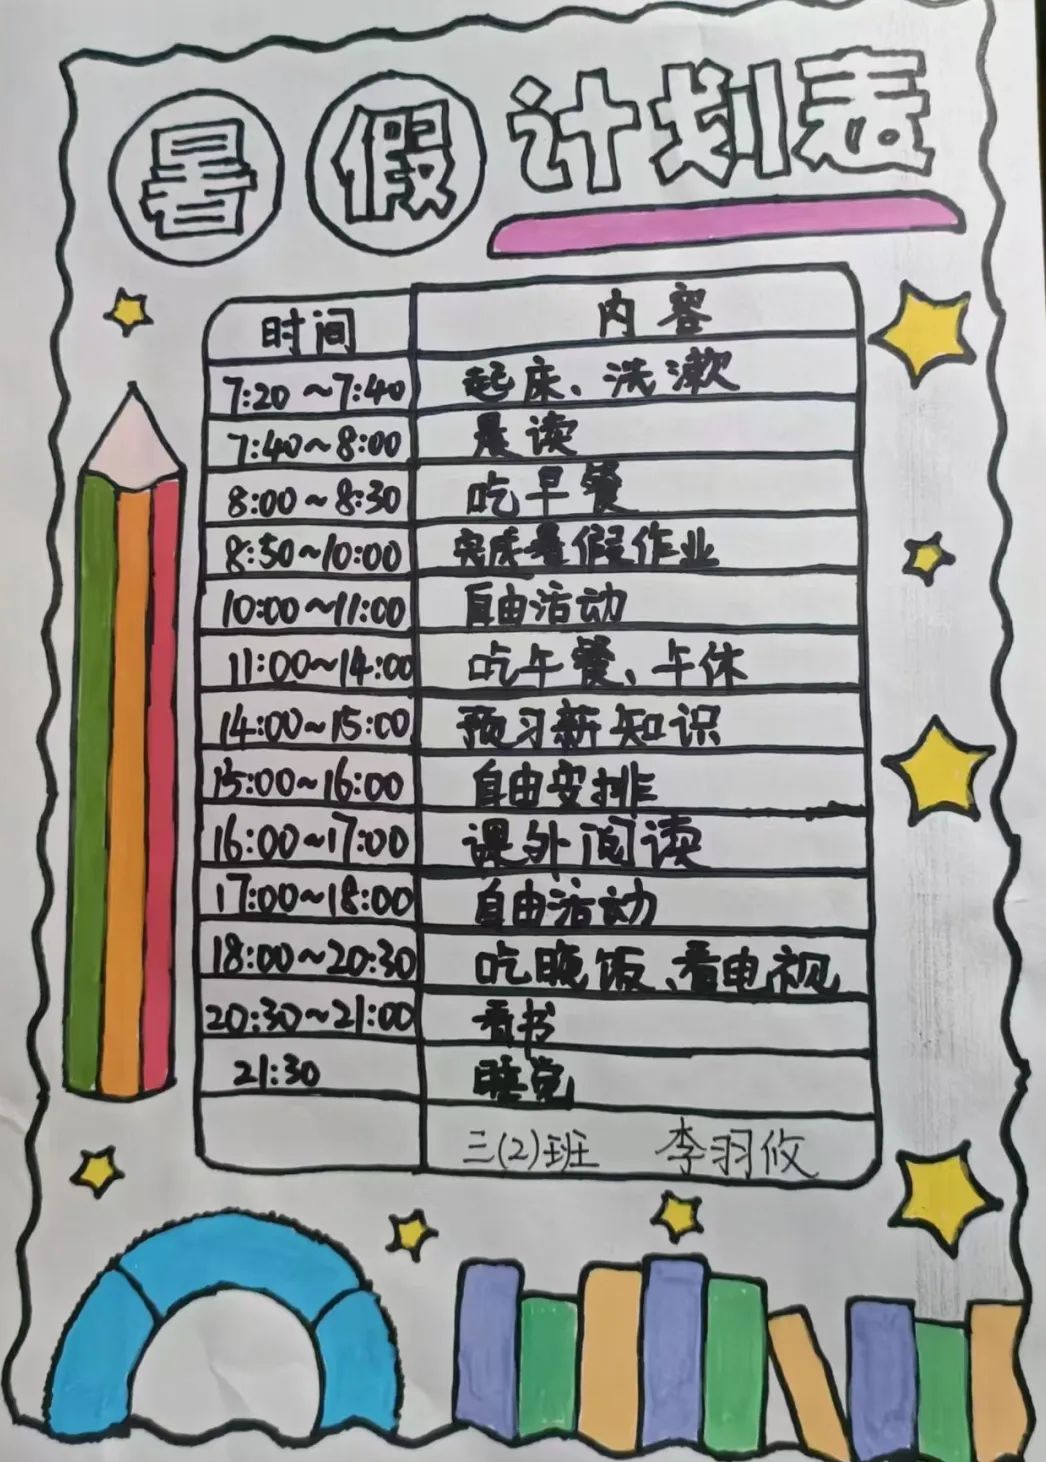 暑假计划表
时间 内容
7:20~7:40 起床、洗漱
7:40~8:00 晨读
8:00~8:30 吃早餐
8:50~10:00 完成暑假作业
10:00~11:00 自由活动
11:00~14:00 吃午餐、午休
14:00~15:00 预习新知识
15:00~16:00 自由安排
16:00~17:00 课外阅读
17:00~18:00 自由活动
18:00~20:30 吃晚饭、看电视
20:30~21:00 看书
21:30 睡觉
三(2)班 李羽攸